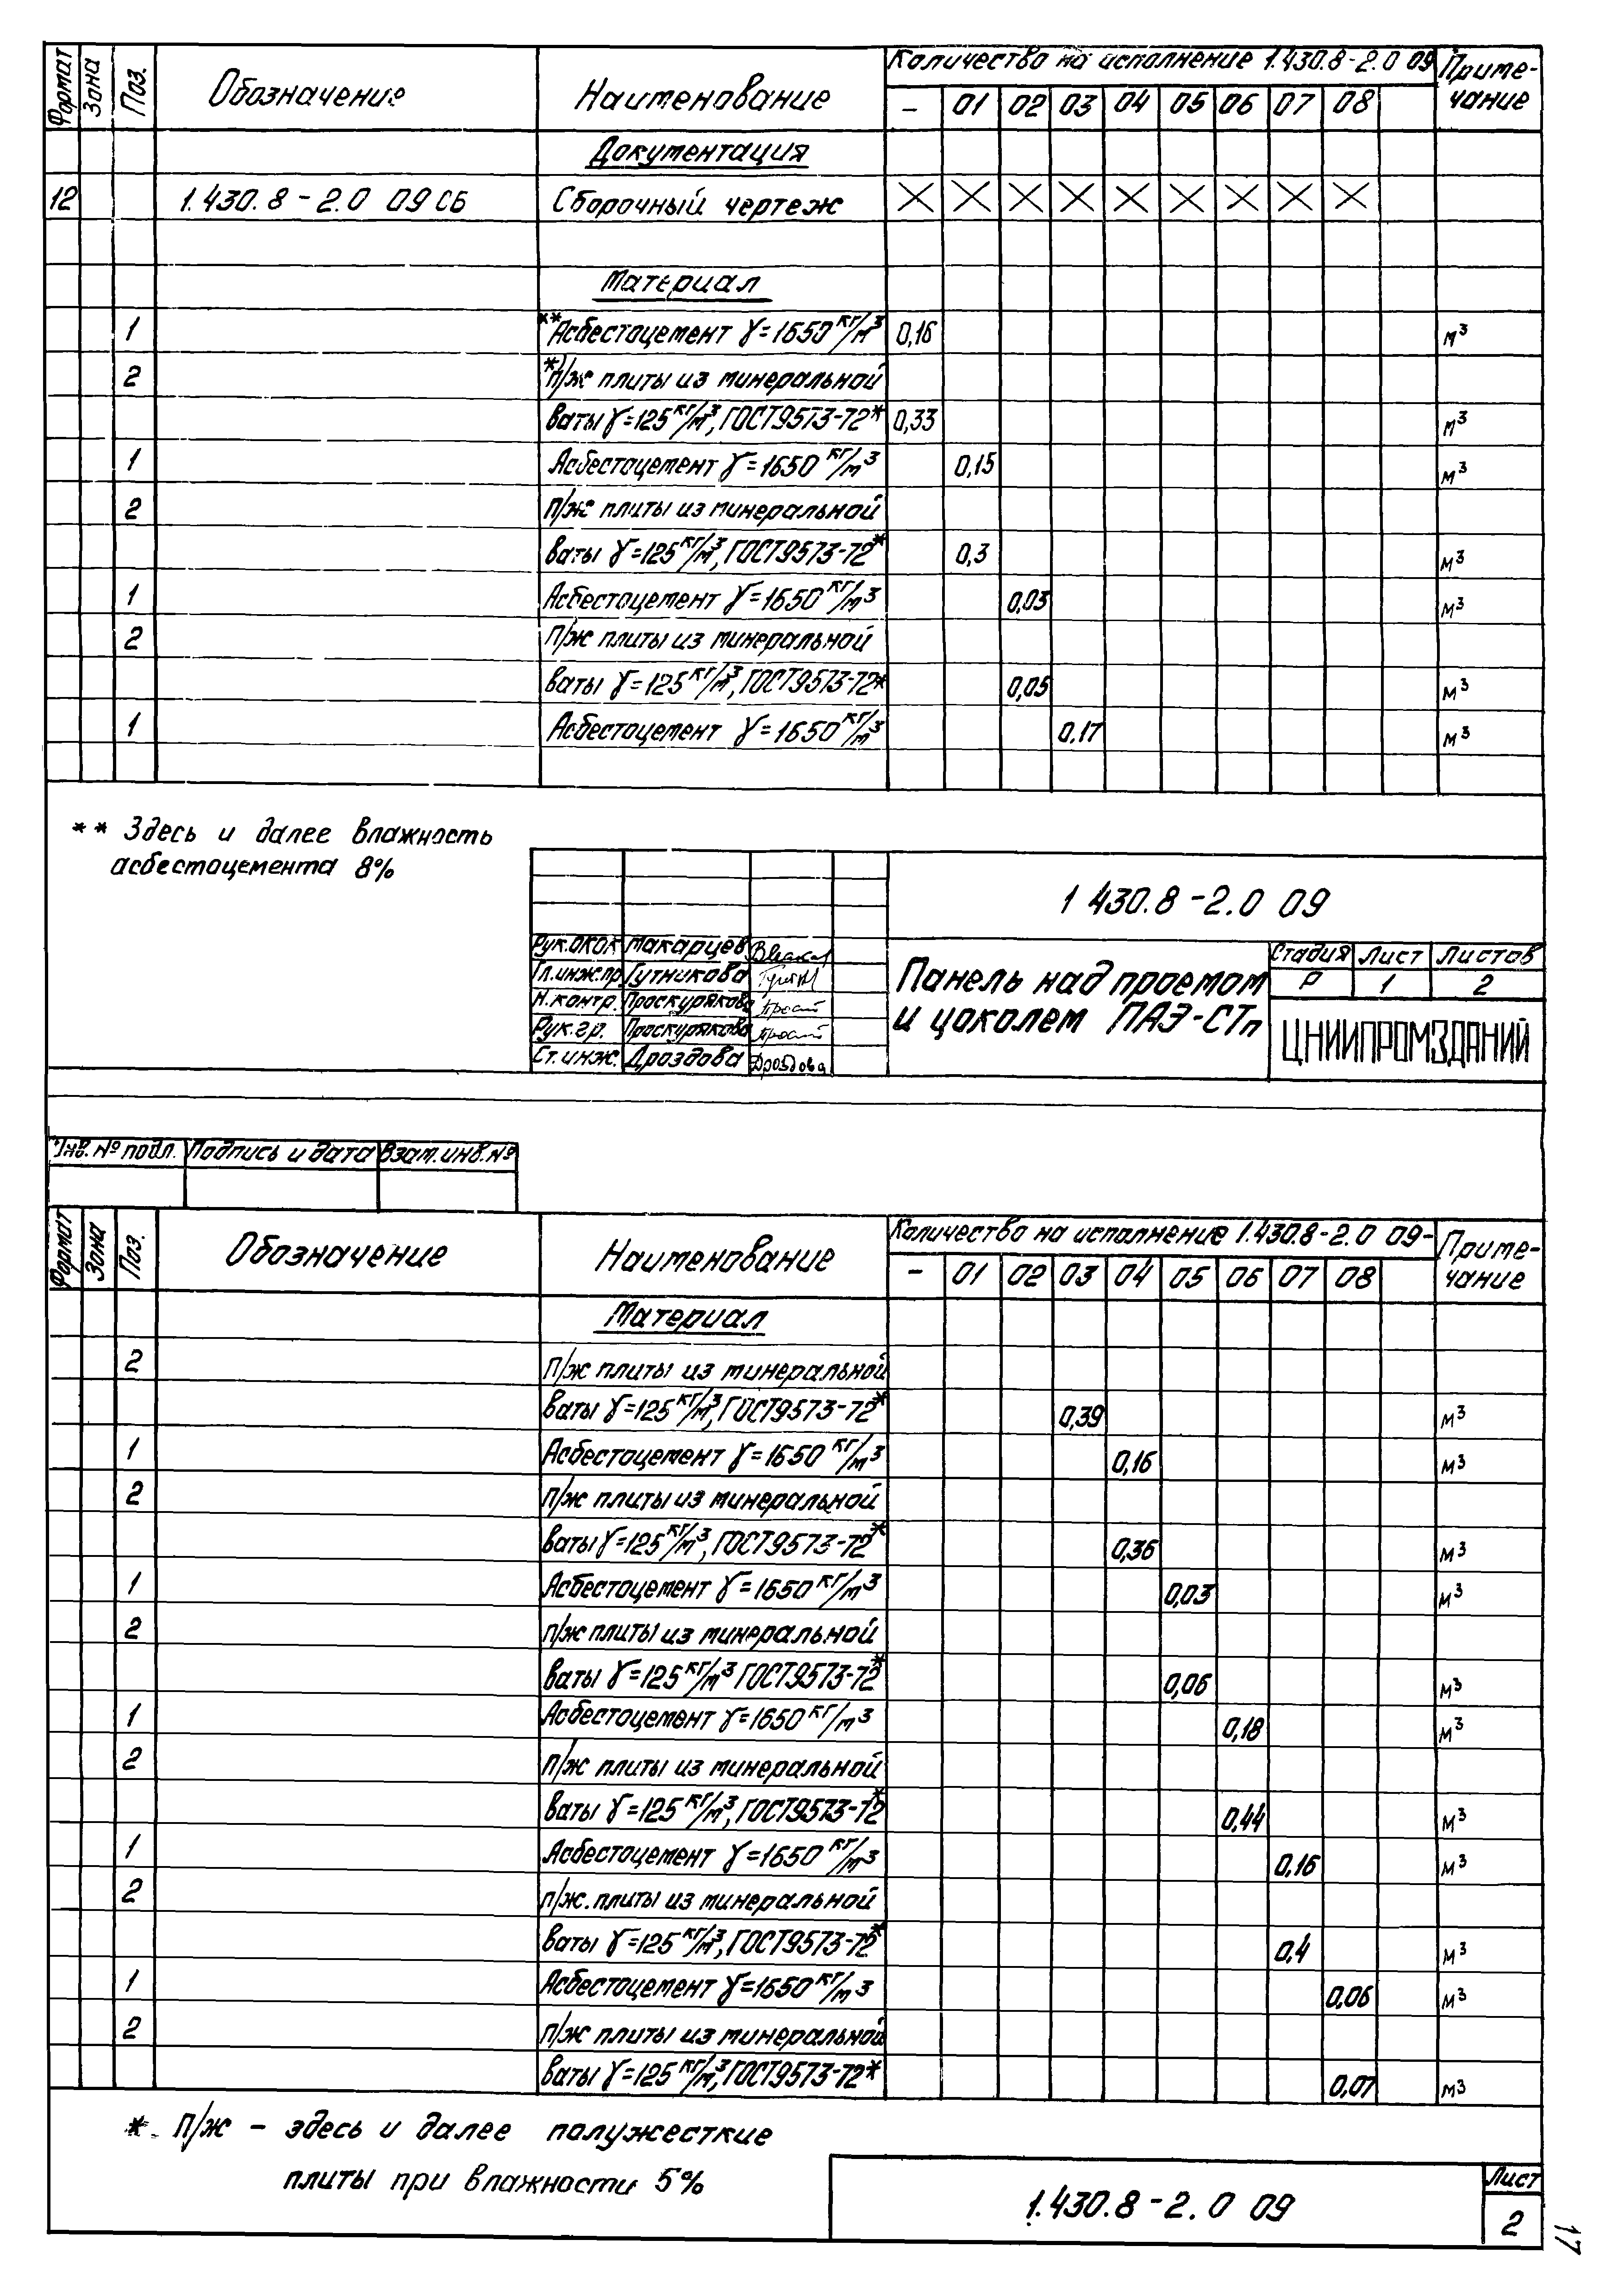 Формат
Зона
Поз.
Обозначение
Наименование
Количество на исполнение 1.430.8-2.0 09
Приме-
чание
– 01 02 03 04 05 06 07 08
Документация
12 1.430.8-2.0 09 СБ Сборочный чертеж
Материал
1 **Асбестоцемент γ=1650 кг/м³ 0,16 м³
2 *)п/ж плиты из минеральной
ваты γ=125 кг/м³, ГОСТ 9573-72* 0,33 м³
1 Асбестоцемент γ=1650 кг/м³ 0,15 м³
2 п/ж плиты из минеральной
ваты γ=125 кг/м³, ГОСТ 9573-72* 0,3 м³
1 Асбестоцемент γ=1650 кг/м³ 0,03 м³
2 п/ж плиты из минеральной
ваты γ=125 кг/м³, ГОСТ 9573-72* 0,05 м³
1 Асбестоцемент γ=1650 кг/м³ 0,17 м³
** Здесь и далее влажность
асбестоцемента 8%
1 430.8-2.0 09
Рук. ОКОК Макарцев
Гл.инж.пр. Гутникова
Н.контр. Проскурякова
Рук.гр. Проскурякова
Ст.инж. Дроздова Дроздова
Панель над проемом
и цоколем ПАЭ-СТп
Стадия Лист Листов
Р 1 2
ЦНИИПРОМЗДАНИЙ
Инв. № подл. Подпись и дата Взам. инв. №
Формат
Зона
Поз.
Обозначение
Наименование
Количество на исполнение 1.430.8-2.0 09-
Приме-
чание
– 01 02 03 04 05 06 07 08
Материал
2 п/ж плиты из минеральной
ваты γ=125 кг/м³, ГОСТ 9573-72* 0,39 м³
1 Асбестоцемент γ=1650 кг/м³ 0,16 м³
2 п/ж плиты из минеральной
ваты γ=125 кг/м³, ГОСТ 9573-72* 0,36 м³
1 Асбестоцемент γ=1650 кг/м³ 0,03 м³
2 п/ж плиты из минеральной
ваты γ=125 кг/м³ ГОСТ 9573-72* 0,06 м³
1 Асбестоцемент γ=1650 кг/м³ 0,18 м³
2 п/ж плиты из минеральной
ваты γ=125 кг/м³, ГОСТ 9573-72* 0,44 м³
1 Асбестоцемент γ=1650 кг/м³ 0,16 м³
2 п/ж. плиты из минеральной
ваты γ=125 кг/м³, ГОСТ 9573-72* 0,4 м³
1 Асбестоцемент γ=1650 кг/м³ 0,06 м³
2 п/ж плиты из минеральной
ваты γ=125 кг/м³, ГОСТ 9573-72* 0,07 м³
* П/ж – здесь и далее полужесткие
плиты при влажности 5%
1.430.8-2.0 09
Лист
2
17